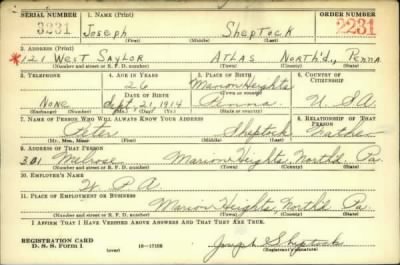 SERIAL NUMBER 1. NAME (Print) ORDER NUMBER
3231 Joseph Sheptock 2231
(First) (Middle) (Last)
2. ADDRESS (Print)
*121 West Saylor Atlas North'd., Penna
(Number and street or R. F. D. number) (Town) (County) (State)
3. TELEPHONE 4. AGE IN YEARS 5. PLACE OF BIRTH 6. COUNTRY OF CITIZENSHIP
26 Marion Heights
DATE OF BIRTH (Town or county)
None Sept. 21, 1914 Penna. U. S. A.
(Exchange) (Number) (Mo.) (Day) (Yr.) (State or country)
7. NAME OF PERSON WHO WILL ALWAYS KNOW YOUR ADDRESS 8. RELATIONSHIP OF THAT PERSON
Peter Sheptock Father
(Mr., Mrs., Miss) (First) (Middle) (Last)
9. ADDRESS OF THAT PERSON
301 Melrose Marion Heights, North'd. Pa.
(Number and street or R. F. D. number) (Town) (County) (State)
10. EMPLOYER'S NAME
W. P. A.
11. PLACE OF EMPLOYMENT OR BUSINESS
Marion Heights, North'd. Pa.
(Number and street or R. F. D. number) (Town) (County) (State)
I AFFIRM THAT I HAVE VERIFIED ABOVE ANSWERS AND THAT THEY ARE TRUE.
REGISTRATION CARD
D. S. S. Form 1 (over) 16—17105 Joseph Sheptock